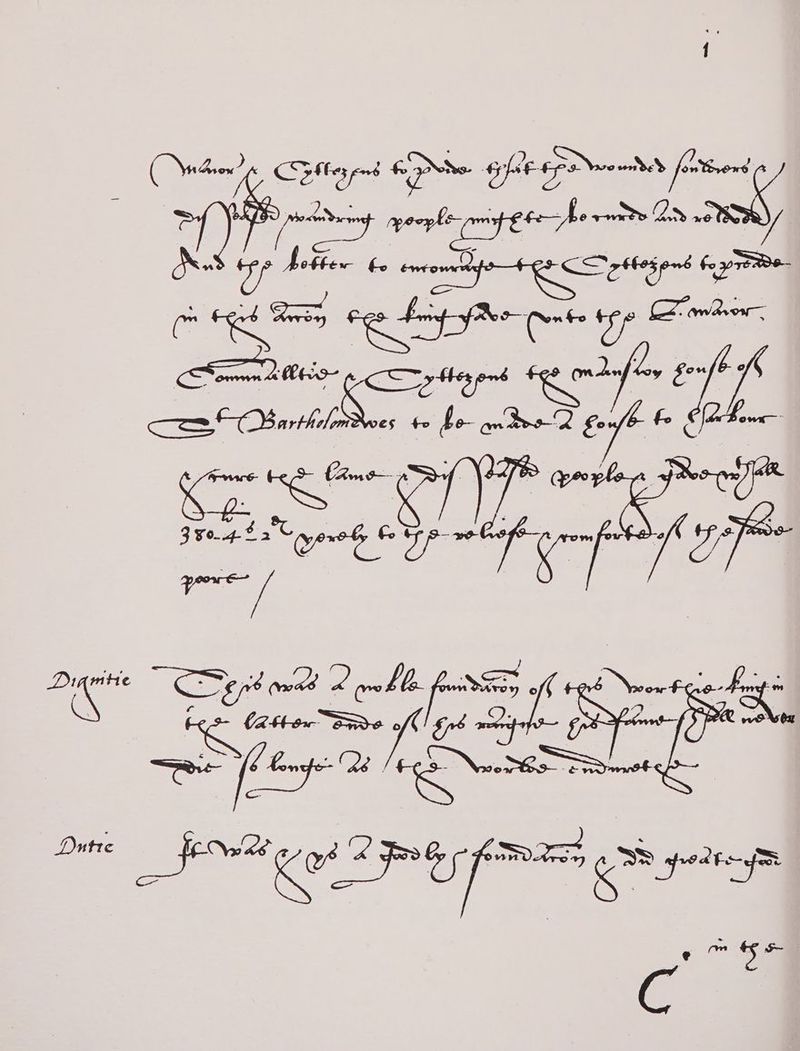 1
Maior & Cyttezens to pvide that the wounded souldiers &
diseased wandring people might be cured and releved /
And the better to encourage the Cyttezens to preade
in this accon the king gave vnto the L. maior
Comunaltie & Cyttezens the mansion house off
St Bartholomewes to be made a house to harbour
& cure the lame & diseased people & gave withall
yerely to the reliefe & comforte off the saide
poore /
Dignitie This was a noble foundacon off this worthie king in
the latter ende off his raigne his fame shall never
die so longe as the worlde endureth
Dutie It was & ys a godly foundacon & dd greate good
in the
C